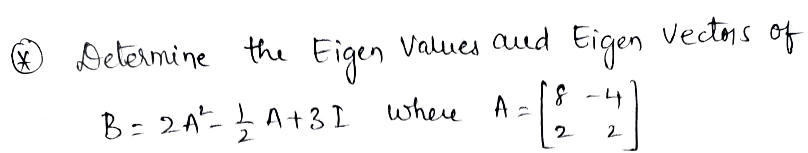 (*) Determine the Eigen Values and Eigen Vectors of
B = 2A² - 1/2 A + 3 I where A = [8 -4; 2 2]